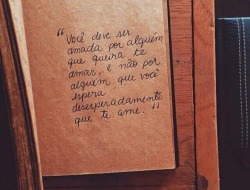 "Você deve ser
amada por alguém
que queira te
amar, e não por
alguém que você
espera
desesperadamente
que te ame."